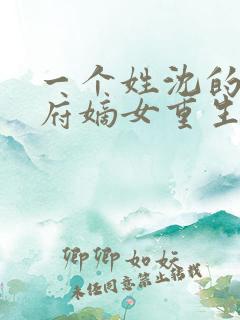 一个姓沈的
府嫡女重生
卿卿如妘
未经同意禁止转载